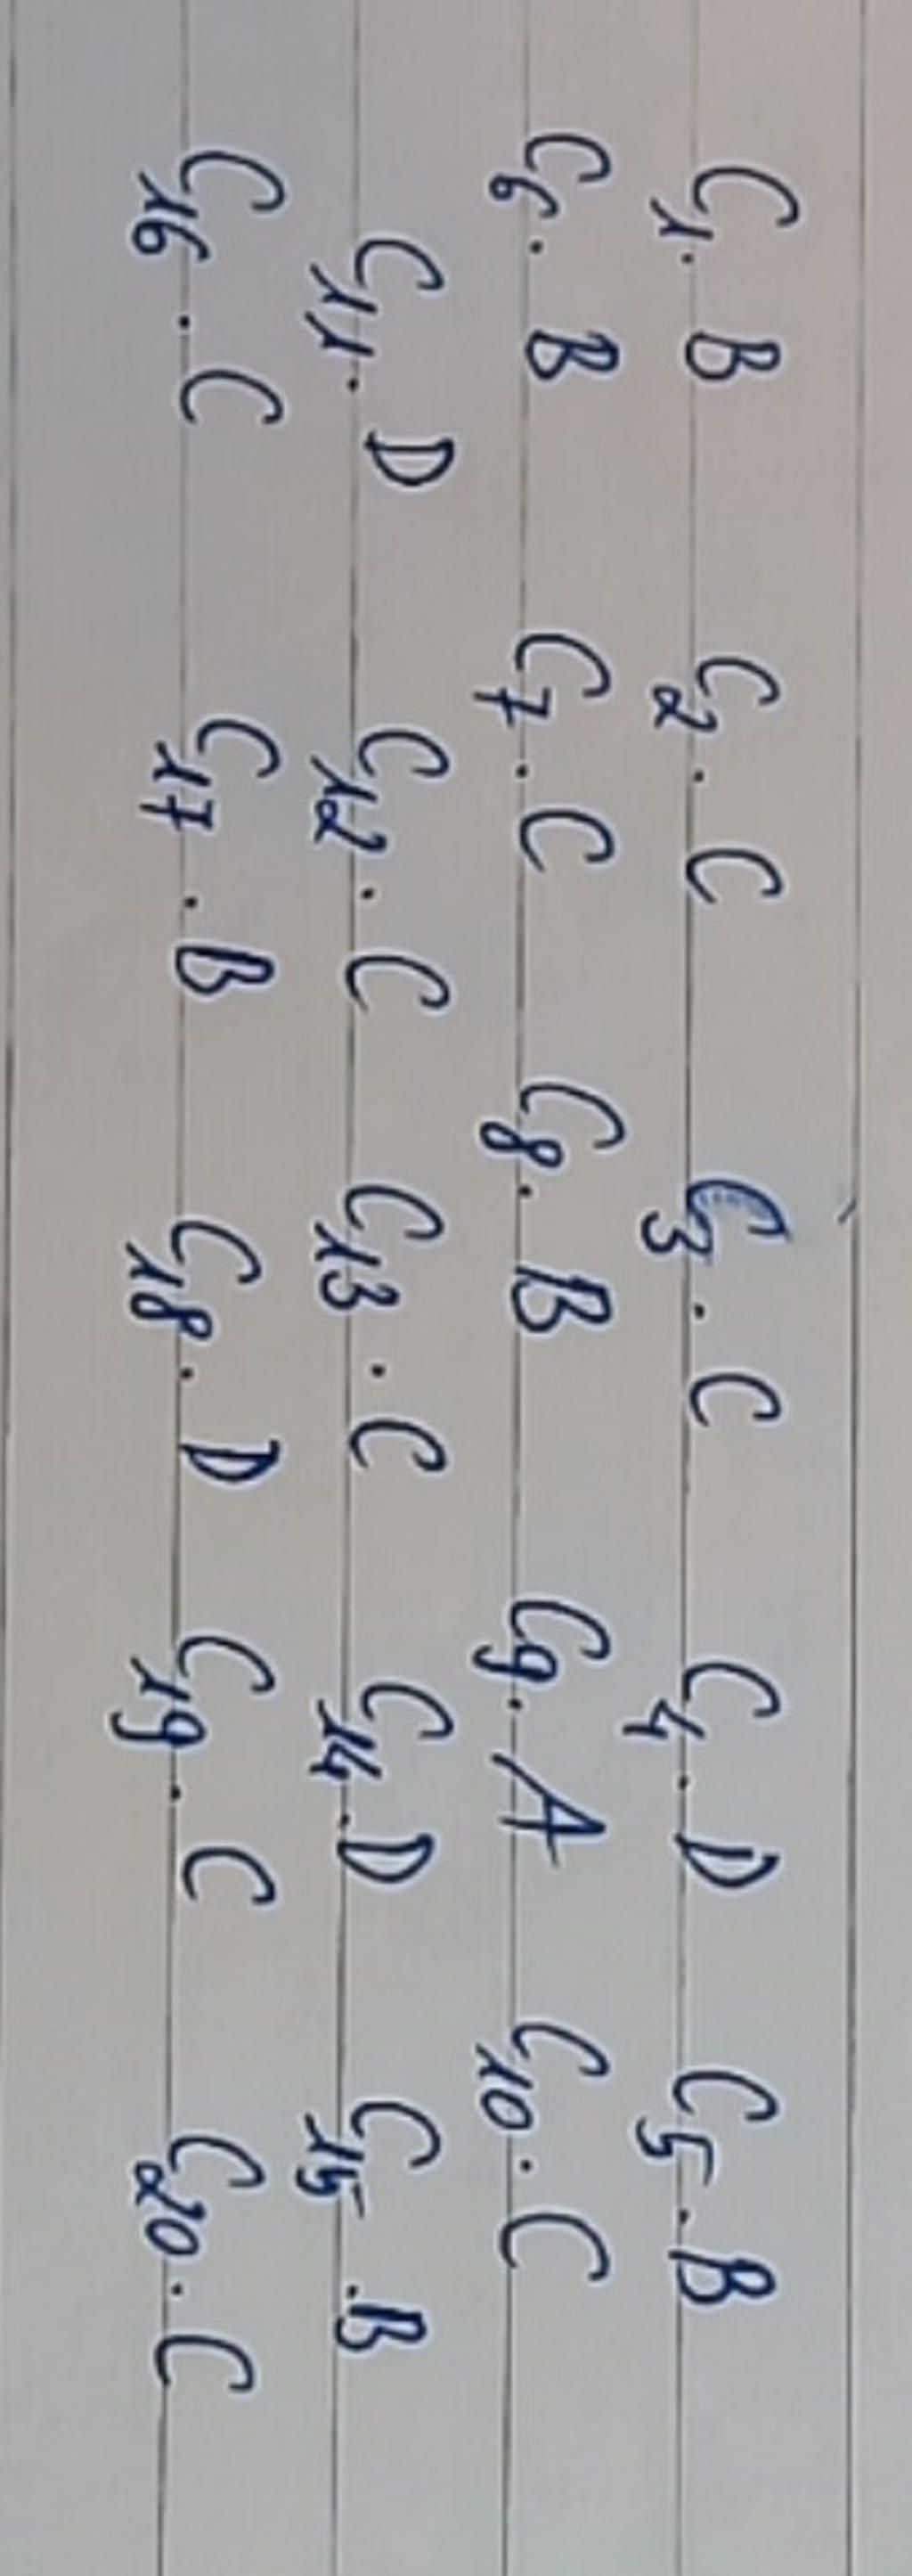 C1. B C2. C C3. C C4. D C5. B
C6. B C7. C C8. B C9. A C10. C
C11. D C12. C C13. C C14. D C15. B
C16. C C17. B C18. D C19. C C20. C